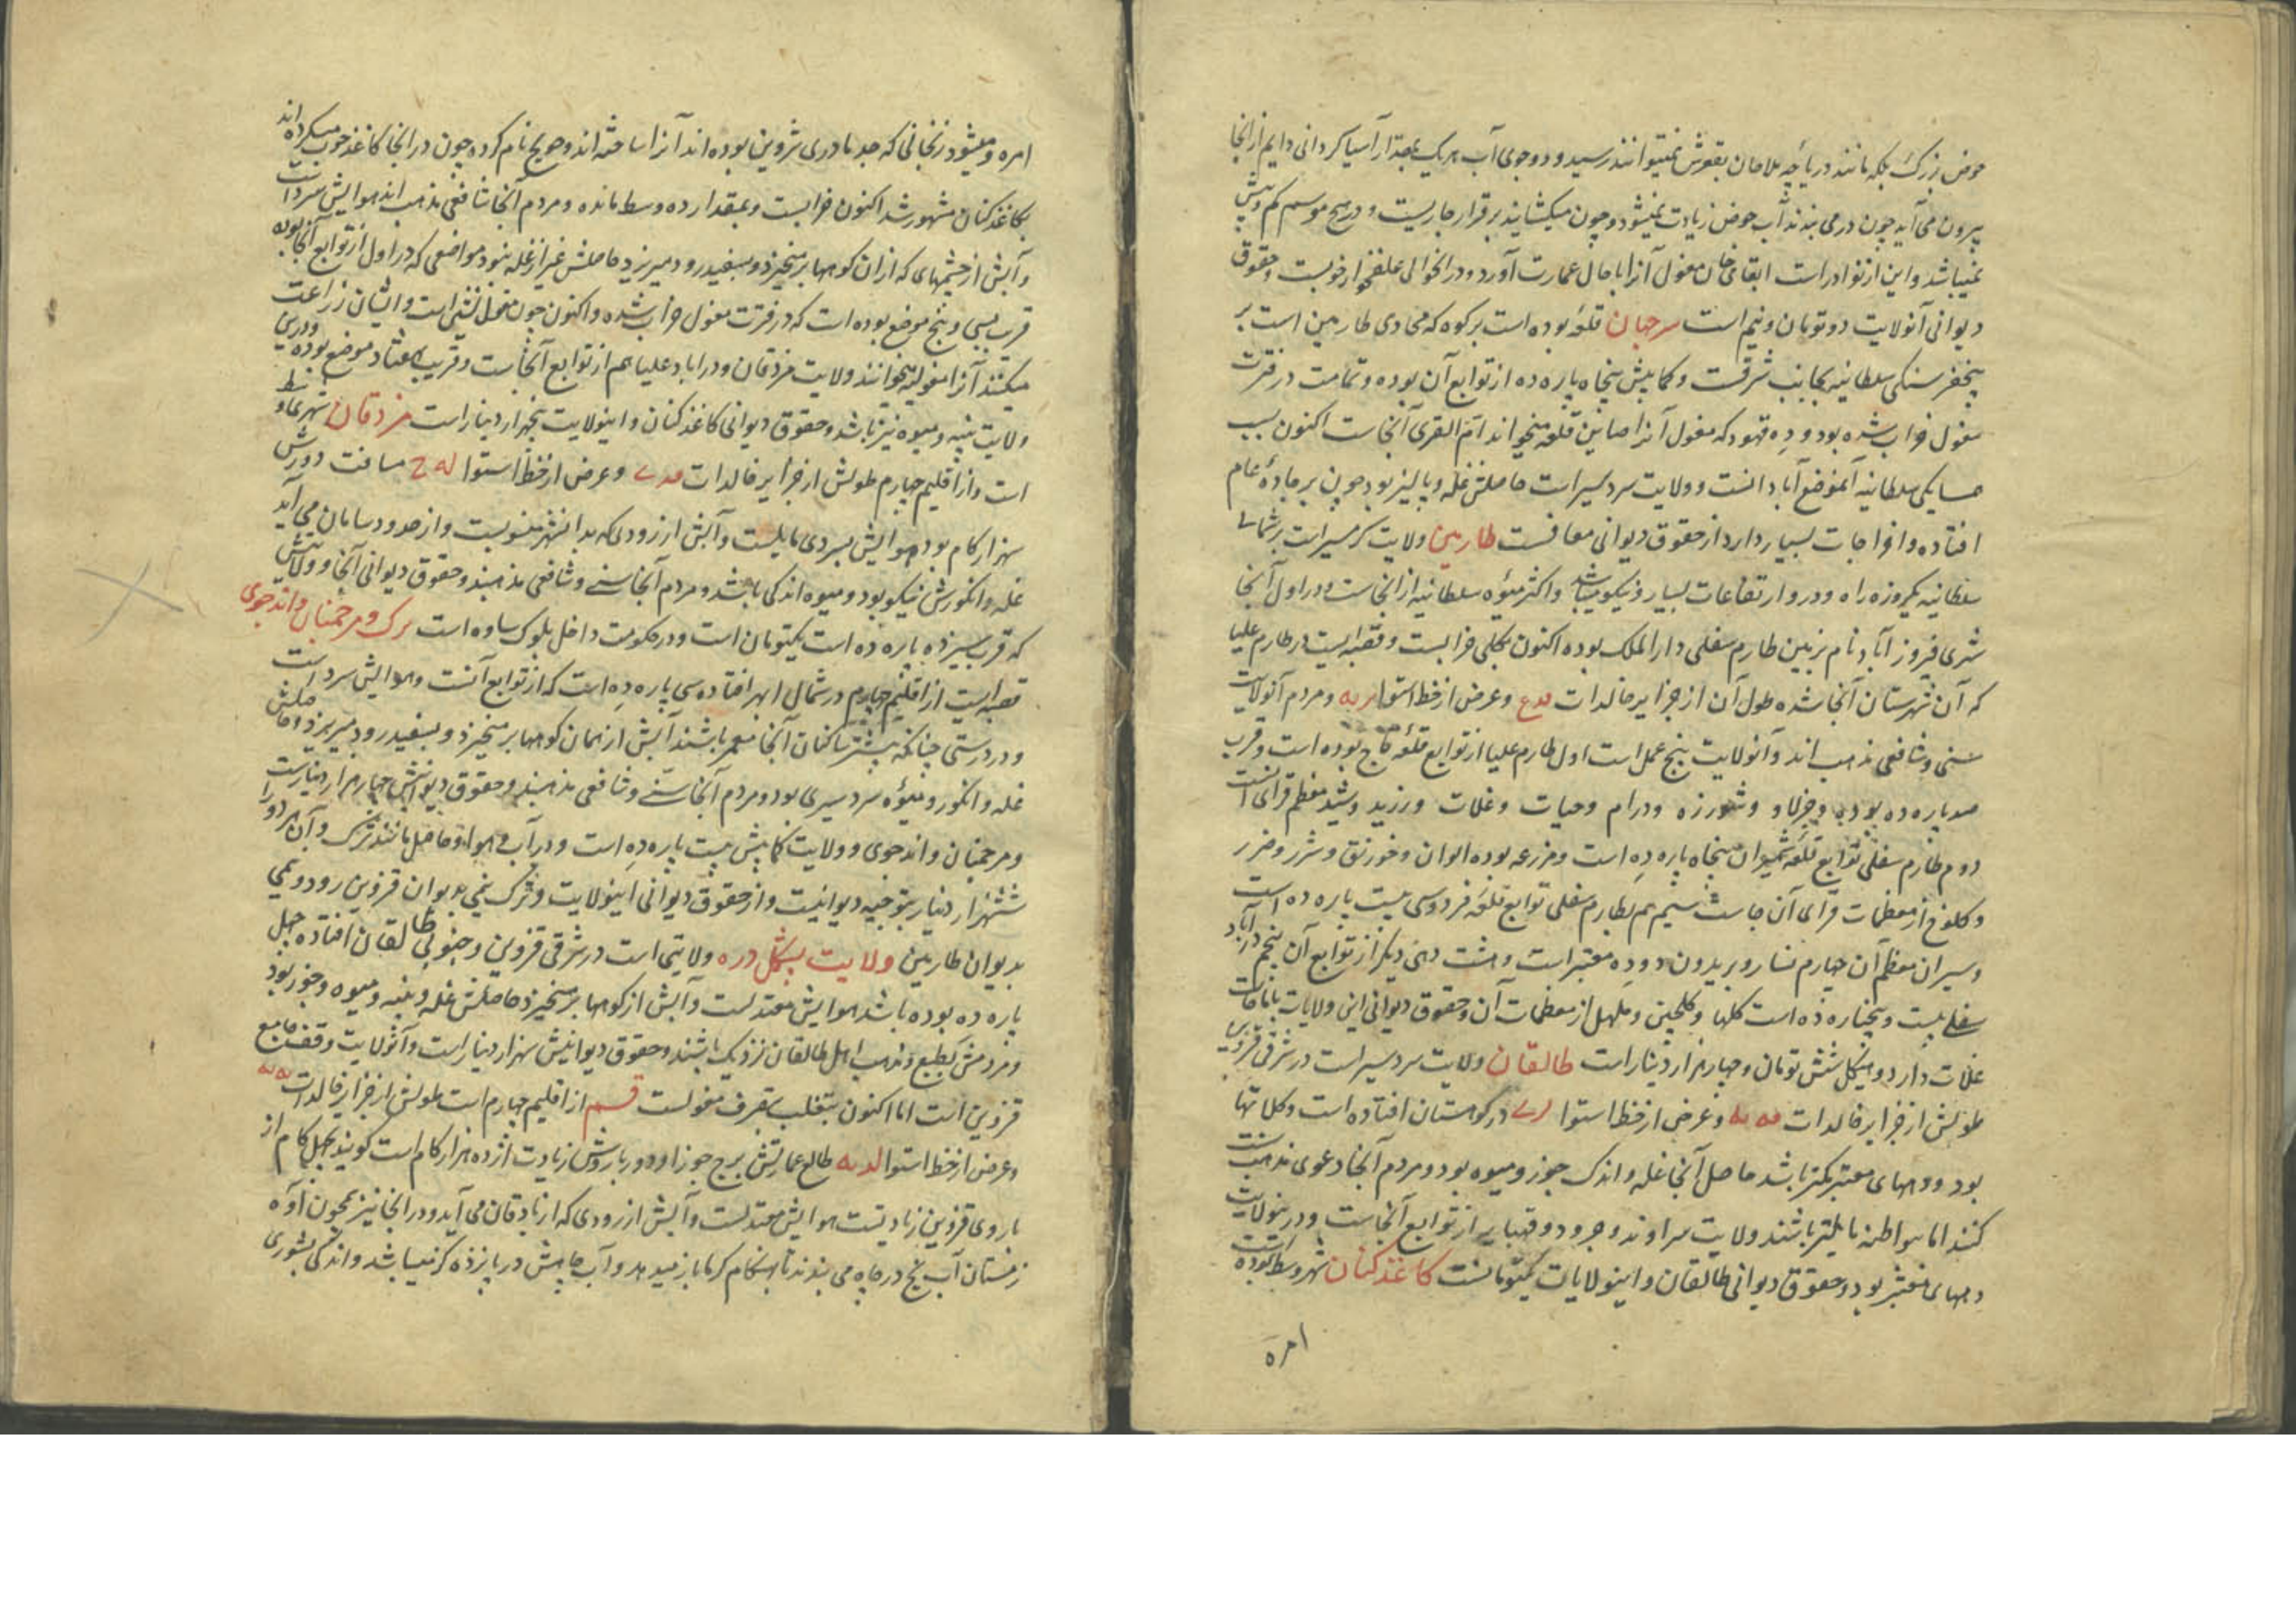 حوض بزرگ بلکه مانند دریاچه ملاحان بقعرش نمیتوانند رسید و دو جوی آب هریک بمقدار آسیا گردانی دایم از انجا
بیرون می آید چون در می بندند آب حوض زیادت نمیشود و چون میکشایند برقرار جاریست و در هیچ موسم کم و بیش
نمیباشد و این از نوادر است ابقای خان مغول آنرا باحال عمارت آورد و در انحوالی علفخوار خوبست و حقوق
دیوانی آنولایت دو تومان و نیم است سرجهان قلعه بوده است بر کوه که محاذی طارمین است بر
پنجفرسنگی سلطانیه بجانب شرقست و کمابیش پنجاه پاره ده از توابع آن بوده و تمامت در فترت
مغول خراب شده بود و ده قهود که مغول آنرا صاین قلعه میخوانند ام القری آنجاست اکنون بسبب
همسایگی سلطانیه آنموضع آبادانست و ولایت سردسیر است حاصلش غله و پالیز بود چون بر جاده عام
افتاده و اخراجات بسیار دارد از حقوق دیوانی معافست طارمین ولایت گرمسیر است بر شمالی
سلطانیه یکروزه راه و درو ارتفاعات بسیار و نیکو میباشد و اکثر میوه سلطانیه از انجاست و در اول آنجا
شهری فیروز آباد نام بزمین طارم سفلی دار الملک بوده اکنون بکلی خرابست و قصبه ایست در طارم علیا
که آن شهرستان آنجا شده طول آن از جزایر خالدات و عرض از خط استوا و مردم آنولایت
سنی و شافعی مذهب اند و آنولایت پنج عمل است اول طارم علیا از توابع قلعه تاج بوده است و قرب
صد پاره ده بوده و جزلا و شورزه و درام و حیات و غلات و رزید و شید معظم قرای آنست
دوم طارم سفلی توابع قلعه شمیران پنجاه پاره ده است و مزرعه بوده الوان و خورنق و شرر و ضرر
و کلوخ از معظمات قرای آن جاست سیم هم بطارم سفلی توابع قلعه فردوسی بیست پاره ده است
و سیران معظم آن چهارم نسار و بریدون دو ده معتبر است و هشت دهی دیگر از توابع آن پنجم درآباد
سفلی بیست و پنجپاره ده است کلها و کلچین و ملهل از معظمات آن و حقوق دیوانی این ولایات
غلات دارد و بیکل شش تومان و چهار هزار دینار است طالقان ولایت سردسیر است در شرقی قزوین
طولش از جزایر خالدات و عرض از خط استوا در کوهستان افتاده است و کلاتها
بود و دههای معتبر کمتر باشد حاصل آنجا غله و اندک جوز و میوه بود و مردم آنجا دعوی مذهب سنت
کنند اما ببواطنه مایلتر باشند ولایت سراوند و جرود و قهپایه از توابع آنجاست و درینولایت
دههای معتبر بود و حقوق دیوانی طالقان و اینولایات یکتومانست کاغذ کنان شهر وسط بوده است
امره
امره و میشود زنجانی که جد مادری شروین بوده اند آنرا ساخته اند و خونج نام کرده چون در انجا کاغذ خوب میکرده اند
بکاغذ کنان مشهور شد اکنون خرابست و بمقدار ده وسط مانده و مردم آنجا شافعی مذهب اند هوایش سرد است
و آبش از چشمهای که ازان کوهها بر میخیزد و بسفیدرود میریزد حاصلش غیر از غله نبود مواضعی که در اول از توابع آنجا بوده
قرب بیسی و پنج موضع بوده است که در فترت مغول خراب شده و اکنون چون مغول نشین است و ایشان زراعت
میکنند آنرا مغولیه میخوانند ولایت مزدقان و درآباد علیا هم از توابع آنجاست و قریب هفتاد موضع بوده و درین
ولایت پنبه و میوه نیز باشد و حقوق دیوانی کاغذ کنان و اینولایت پنجهزار دینار است مزدقان شهری وسط
است و از اقلیم چهارم طولش از جزایر خالدات و عرض از خط استوا له ح مسافت دورش
سه هزار گام بود هوایش بسردی مایلست و آبش از رودی که بدانشهر منسوبست و از حدود سامان می آید
غله و انگورش نیکو بود و میوه اندکی باشد و مردم آنجا سنی و شافعی مذهبند و حقوق دیوانی آنجا و ولایتش
که قرب سیزده پاره ده است یکتومان است و در حکومت داخل بلوک ساوه است ترک و مرحمنان و اندجوی
قصبه ایست از اقلیم چهارم در شمال ابهر افتاده سی پاره ده است که از توابع آنست و هوایش سرد است
و در درستی چنانکه بیشتر ساکنان آنجا معمر باشند آبش از همان کوهها بر میخیزد و بسفیدرود میریزد و حاصلش
غله و انگور و میوه سردسیری بود و مردم آنجا سنی و شافعی مذهبند و حقوق دیوانیش چهار هزار دینار است
و مرحمنان و اندجوی و ولایت کمابیش بیست پاره ده است و در آب و هوا و حاصل مانند ترک و آن هر دو را
ششهزار دینار بتوجیه دیوانیست و از حقوق دیوانی اینولایت و ترک نیمی بدیوان قزوین رود و نیمی
بدیوان طارمین ولایت بشکل دره ولایتی است در شرقی قزوین و جنوبی طالقان افتاده چهل
پاره ده بوده باشد هوایش معتدلست و آبش از کوهها بر میخیزد حاصلش غله و پنبه و میوه و جوز بود
و مردمش بطبع و مذهب اهل طالقان نزدیک باشند و حقوق دیوانیش سهزار دینار است و آنولایت وقف جامع
قزوین است اما اکنون بتغلب بتصرف مغولست قم از اقلیم چهارم است طولش از جزایر خالدات
و عرض از خط استوا لد مه طالع عمارتش برج جوزا و دور باروش زیادت از ده هزار گام است گویند بچهل گام از
باروی قزوین زیادتست هوایش معتدلست و آبش از رودی که از جربادقان می آید و در انجا نیز همچون آوه
زمستان آب یخ در چاه می بندند تا بهنگام گرما باز میدهد و آب چاهش در پانزده گز میباشد و اندکی بشوری